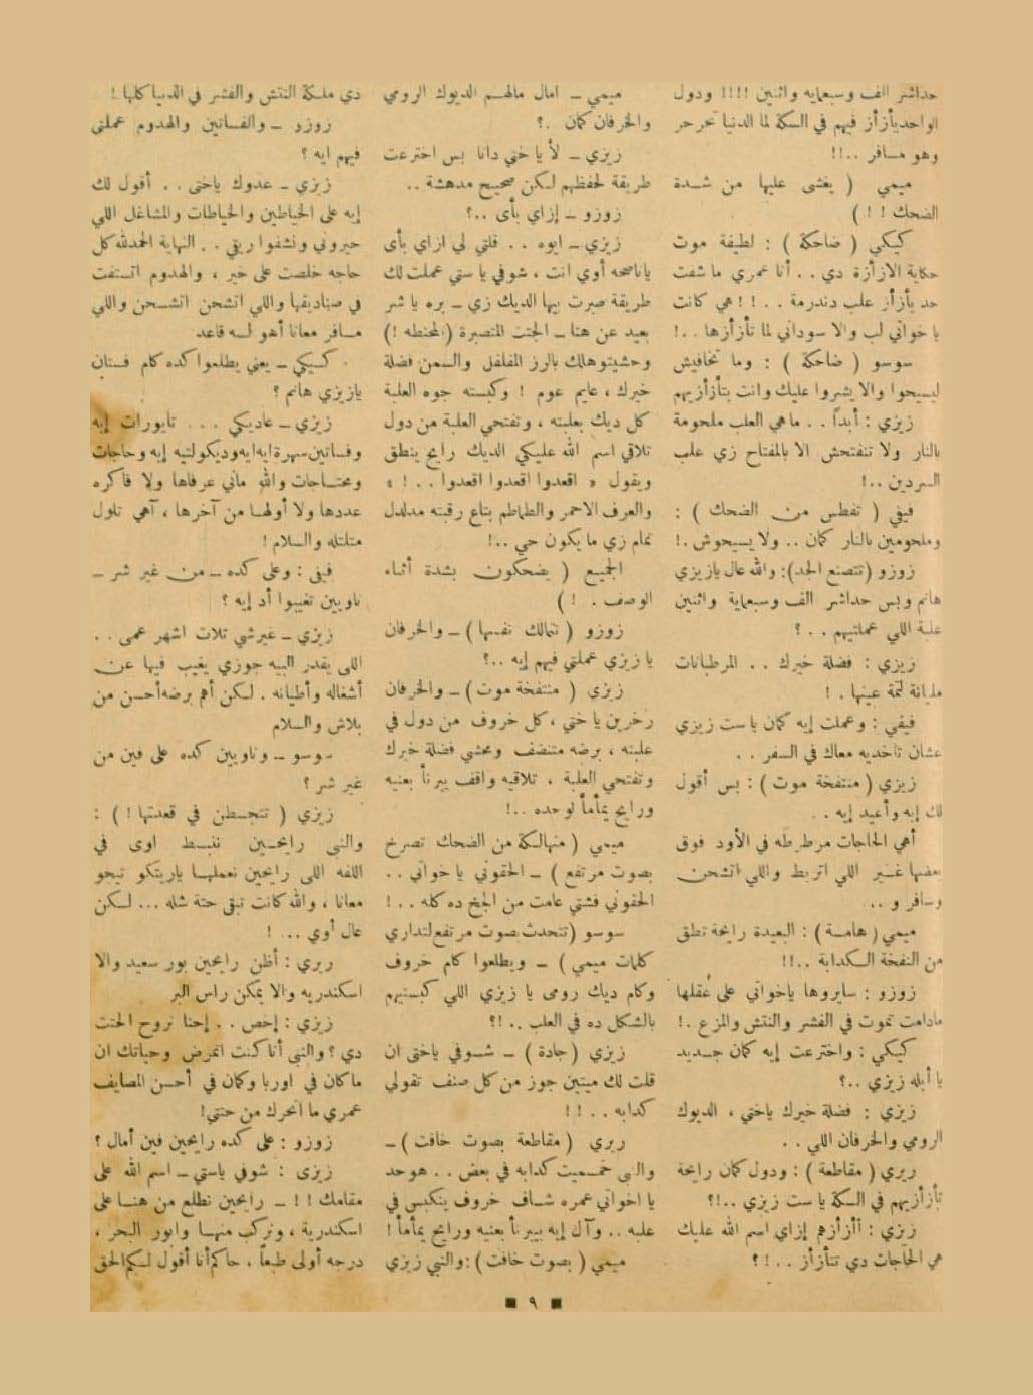 حداشر الف وسبعمايه واثنين !!!! ودول
الواحد يأزأز فيهم في السكة لما الدنيا تحرحر
وهو مسافر ..!!
ميمي ( يغشى عليها من شدة
الضحك !! )
كيكي ( ضاحكة ) : لطيفة موت
حكاية الازأزة دي .. أنا عمري ما شفت
حد يأزأز علب دندرمة ..!! هي كانت
يا خواتي لب والا سوداني لما تأزأزها ..!
سوسو ( ضاحكة ) : وما تخافيش
ليسيحوا والا يشروا عليك وانت بتأزأزيهم
زيزي : أبداً .. ماهي العلب ملحومة
بالنار ولا تنفتحش الا بالمفتاح زي علب
السردين ..!
فيفي ( تفطس من الضحك ) :
وملحومين بالنار كمان .. ولا يسيحوش .!
زوزو (تتصنع الجد): والله عال يازيزي
هانم وبس حداشر الف وسبعماية واثنين
علبة اللي عملتيهم ..؟
زيزي : فضلة خيرك .. المرطبانات
مليانة لتمة عينها .!
فيفي : وعملت إيه كمان ياست زيزي
عشان تاخديه معاك في السفر ..
زيزي ( منتفخة موت ) : بس أقول
لك إيه وأعيد إيه ..
أهي الحاجات مرطرطه في الأود فوق
بعضها غير اللي اتربط واللي اتشحن
وسافر و ...
ميمي ( هامسة ) : البعيدة رايحة تطق
من النفخة الكدابة ..!!
زوزو : سايروها ياخواتي على عقلها
مادامت تموت في الفشر والنتش والمزع .!
كيكي : واخترعت إيه كمان جديد
يا أبله زيزي ..؟
زيزي : فضلة خيرك ياختي ، الديوك
الرومي والخرفان اللي ..
ريري ( مقاطعة ) : ودول كمان رايحة
تأزأزيهم في السكة يا ست زيزي ..!؟
زيزي : أأزأزهم إزاي اسم الله عليك
هي الحاجات دي تتأزأز ..!؟
ميمي – امال مالهم الديوك الرومي
والخرفان كمان .؟
زيزي – لأ يا ختي دانا بس اخترعت
طريقة لحفظهم لكن صحيح مدهشة ..
زوزو – إزاي بأى ..؟
زيزي – ايوه .. قلتي لي ازاي بأى
ياناصحه أوي انت ، شوفي يا ستي عملت لك
طريقة صبرت بيها الديك زي – بره يا شر
بعيد عن هنا – الجتت المتصبرة (المحنطه !)
وحشيتوهلك بالرز المفلفل والسمن فضلة
خيرك ، عايم عوم ! وكبسته جوه العلبة
كل ديك بعلبته ، وتفتحي العلبة من دول
تلاقي اسم الله عليكي الديك رايح ينطق
ويقول « اقعدوا اقعدوا اقعدوا ..! »
والعرف الاحمر والطماطم بتاع رقبته مدلدل
تمام زي ما يكون حي ..!
الجميع ( يضحكون بشدة أثناء
الوصف . ! )
زوزو ( تتمالك نفسها ) – والخرفان
يا زيزي عملتي فيهم إيه ..؟
زيزي ( منتفخة موت ) – والخرفان
رخرين يا ختي ، كل خروف من دول في
علبته ، برضه متنضف ومحشي فضلة خيرك
وتفتحي العلبة ، تلاقيه واقف يبرنأ بعنيه
ورايح يمأمأ لوحده ..!
ميمي ( متهالكة من الضحك تصرخ
بصوت مرتفع ) – الحقوني يا خواتي ..
الحقوني فشتي عامت من الجخ ده كله ..!
سوسو (تتحدث بصوت مرتفع لتداري
كلمات ميمي) – ويطلعوا كام خروف
وكام ديك رومى يا زيزي اللي كبستيهم
بالشكل ده في العلب ..!؟
زيزي ( جادة ) – شوفي ياختى ان
قلت لك ميتين جوز من كل صنف تقولي
كدابه ..!!
ريري ( مقاطعة بصوت خافت ) –
والنبى خمسميت كدابه في بعض .. هو حد
يا اخواتي عمره شاف خروف ينكبس في
علبه .. وآل إيه بيبرنأ بعنيه ورايح يمأمأ !
ميمي ( بصوت خافت ) : والنبي زيزي
دي ملكة النتش والفشر في الدنيا كلها !
زوزو – والفساتين والهدوم عملتى
فيهم ايه ؟
زيزي – عدوك ياختى .. أقول لك
إيه على الخياطين والخياطات والمشاغل اللي
حيروني ونشفوا ريقي .. النهاية الحمدلله كل
حاجه خلصت على خير ، والهدوم اتستفت
في صناديقها واللي انشحن انشحن واللي
مسافر معانا أهو لسه قاعد
كيكي – يعني يطلعوا كده كام فستان
يازيزي هانم ؟
زيزي – عاديكي ... تايورات إيه
وفساتين سهرة ايه ايه وديكولتيه إيه وحاجات
ومحتاجات والله ماني عرفاها ولا فاكره
عددها ولا أولها من آخرها ، آهي تلول
متلتله والسلام !
فيفى : وعلى كده – من غير شر –
ناويين تغيبوا أد إيه ؟
زيزي – غيرشي تلات اشهر عمى ..
اللى يقدر البيه جوزي يغيب فيها عن
أشغاله وأطيانه . لكن أهم برضه أحسن من
بلاش والسلام
سوسو – وناويين كده على فين من
غير شر ؟
زيزي ( تتجسطن في قعدتها ! ) :
والنبى رايحين ننبسط اوى في
اللفه اللى رايحين نعملها ياريتكو تيجو
معانا ، والله كانت تبقى حتة شله ... لكن
عال أوي ... !
ريري : أظن رايحين بور سعيد والا
اسكندريه والا يمكن راس البر
زيزي : إخص .. إحنا نروح الحتت
دي ؟ والنبى أنا كنت اتمرض وحياتك ان
ماكان في اوربا وكمان في أحسن المصايف
عمري ما اتحرك من حتتي!
زوزو : على كده رايحين فين أمال ؟
زيزى : شوفي ياستي – اسم الله على
مقامك !! – رايحين نطلع من هنا على
اسكندرية ، ونركب منها وابور البحر ،
درجه أولى طبعاً ، حاكم أنا أقول لكم الحق
■ ٩ ■